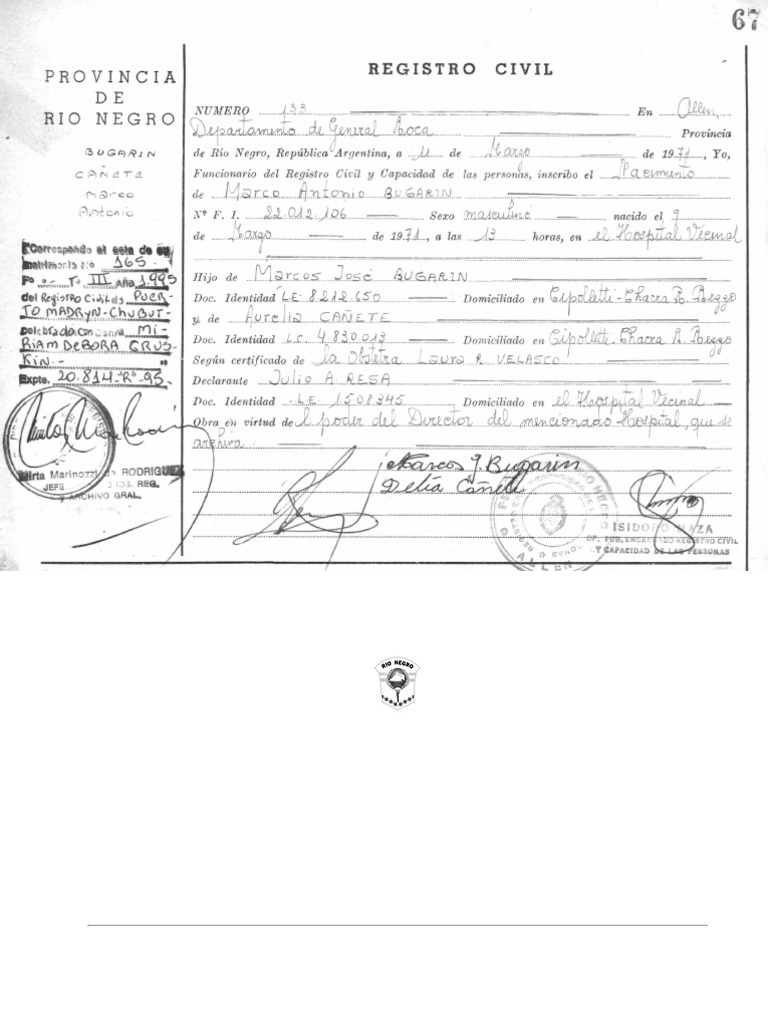 67
PROVINCIA
DE
RIO NEGRO
BUGARIN
CAÑETE
Marco
Antonio
Corresponde el acta de
matrimonio Nº 165.
Fº T° III Año 1995
del Registro Civil de PUER-
TO MADRYN-CHUBUT-
celebrada con MI-
RIAM DEBORA GRUS-
KIN.-
Expte. 20.814-Rº-95.
Mirta Marinozzi de RODRIGUEZ
JEFE REG.
y ARCHIVO GRAL.
REGISTRO CIVIL
NUMERO 133 En Allen,
Departamento de General Roca Provincia
de Río Negro, República Argentina, a 11 de Marzo de 1971, Yo,
Funcionario del Registro Civil y Capacidad de las personas, inscribo el Nacimiento
de Marco Antonio BUGARIN
Nº F. I. 22.012.106 Sexo masculino nacido el 9
de Marzo de 1971, a las 13 horas, en el Hospital Vecinal
Hijo de Marcos José BUGARIN
Doc. Identidad L.E. 8.212.650 Domiciliado en Cipolletti-Chacra R. Rezzo
y de Aurelia CAÑETE
Doc. Identidad L.C. 4.830.013 Domiciliado en Cipolletti-Chacra R. Rezzo
Según certificado de la Obstetra Laura R. VELASCO
Declarante Julio A. RESA
Doc. Identidad L.E. 1508345 Domiciliado en el Hospital Vecinal
Obra en virtud de l poder del Director del mencionado Hospital, que se
archiva
Marcos J. Bugarin
Delia Cañete
ALLEN
ISIDORO MAZA
OF. PUB. ENCARGADO REGISTRO CIVIL
Y CAPACIDAD DE LAS PERSONAS
RIO NEGRO